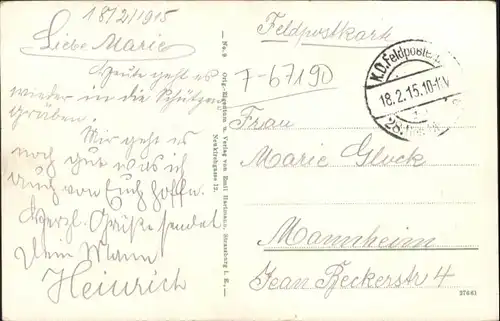 18/2/1915
Liebe Marie
Heute geht es
wieder in die Schützen
gräben.
Mir geht es
noch gut was ich
auch von Euch hoffe.
Herzl. Grüße sendet
Dein Mann
Heinrich
No. 9 Orig.-Eigentum u. Verlag von Emil Hartmann, Strassburg i. E.,
Neukirchgasse 13.
Feldpostkarte
7-67190
K.D. Feldpostexp.
18.2.15.10-11V
Frau
Marie Gluck
Mannheim
Jean Beckerstr 4
37661